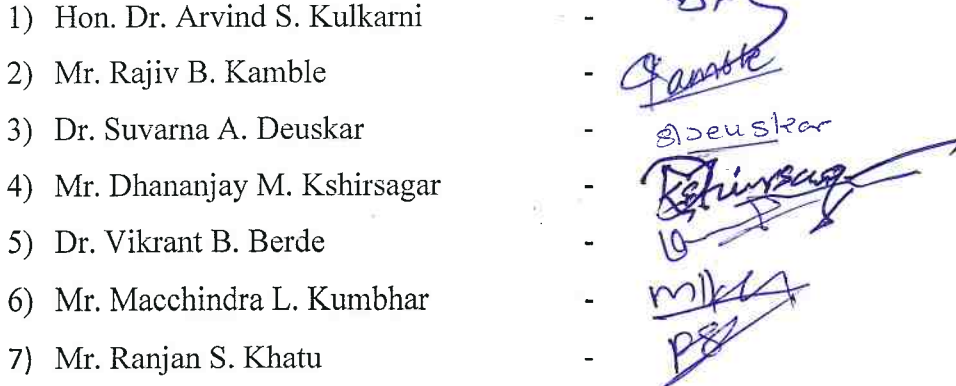 1) Hon. Dr. Arvind S. Kulkarni -
2) Mr. Rajiv B. Kamble - Kamble
3) Dr. Suvarna A. Deuskar - SDeuskar
4) Mr. Dhananjay M. Kshirsagar - Kshirsagar
5) Dr. Vikrant B. Berde -
6) Mr. Macchindra L. Kumbhar -
7) Mr. Ranjan S. Khatu -